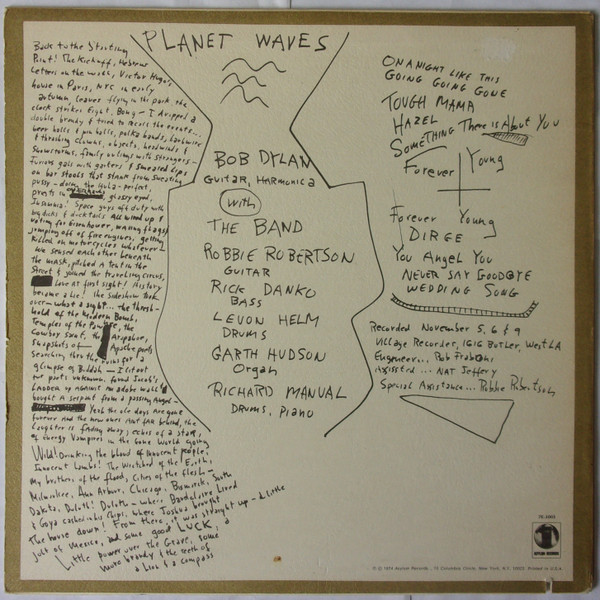 PLANET WAVES
Back to the Starting
Point! The Kickoff, Hebrew
Letters on the wall, Victor Hugo's
house in Paris, NYC in early
autumn, leaves flying in the park, the
clock strikes Eight, Bong — I dropped a
double brandy & tried to recall the events...
beer halls & pin balls, polka bands, barbwire
& thrashing clowns, objects, headwinds &
Snowstorms, family outings with strangers —
Furious gals with garters & smeared lips
on bar stools that stank from sweating
pussy — doing the Hula — perfect,
priests in glossy eyed,
Insomnia! Space guys off duty with
big dicks & ducktails All wired up &
voting for Eisenhower, waving flags &
jumping off of fire engines, getting
killed on motorcycles whatever —
We sensed each other beneath
the mask, pitched a tent in the
Street & joined the traveling circus,
Love at first sight! History
became a lie! The sideshow took
over — what a sight... The thresh-
hold of the Modern Bomb,
Temples of the Pawnee, the
Cowboy Saint, the Arapahoe,
Snapshots of Apache poets
Searching thru the ruins for a
glimpse of Buddah — I lit out
for parts unknown, found Jacob's
Ladder up against an adobe wall &
bought a serpent from a passing Angel —
Yeah the ole days Are gone
forever And the new ones Aint far behind, the
Laughter is fading away, echos of a star,
of Energy Vampires in the Gone World going
Wild! Drinking the blood of innocent people,
Innocent Lambs! The Wretched of the Earth,
My brothers of the flood, Cities of the flesh —
Milwaukee, Ann Arbor, Chicago, Bismarck, South
Dakota, Duluth! Duluth — where Baudelaire Lived
& Goya cashed in his Chips, where Joshua brought
The house down! From there, it was straight up — a Little
jolt of Mexico, and some good LUCK, a
Little power over the Grave, some
more brandy & the teeth of
a Lion & a compass
BOB DYLAN
GUITAR, HARMONICA
With
THE BAND
ROBBIE ROBERTSON
GUITAR
RICK DANKO
BASS
LEVON HELM
DRUMS
GARTH HUDSON
Organ
RICHARD MANUAL
DRUMS, PIANO
ON A NIGHT LIKE THIS
GOING GOING GONE
TOUGH MAMA
HAZEL
SOMETHING There is About You
Forever Young
Forever Young
DIRGE
You Angel You
NEVER SAY GOODBYE
WEDDING SONG
Recorded November 5, 6 & 9
Village Recorder, 1616 Butler, West LA
Engineer... Rob Fraboni
Assisted... NAT Jeffery
Special Assistance... Robbie Robertson
7E-1003
ASYLUM RECORDS
℗ © 1974 Asylum Records, 15 Columbus Circle, New York, N.Y. 10023. Printed in U.S.A.